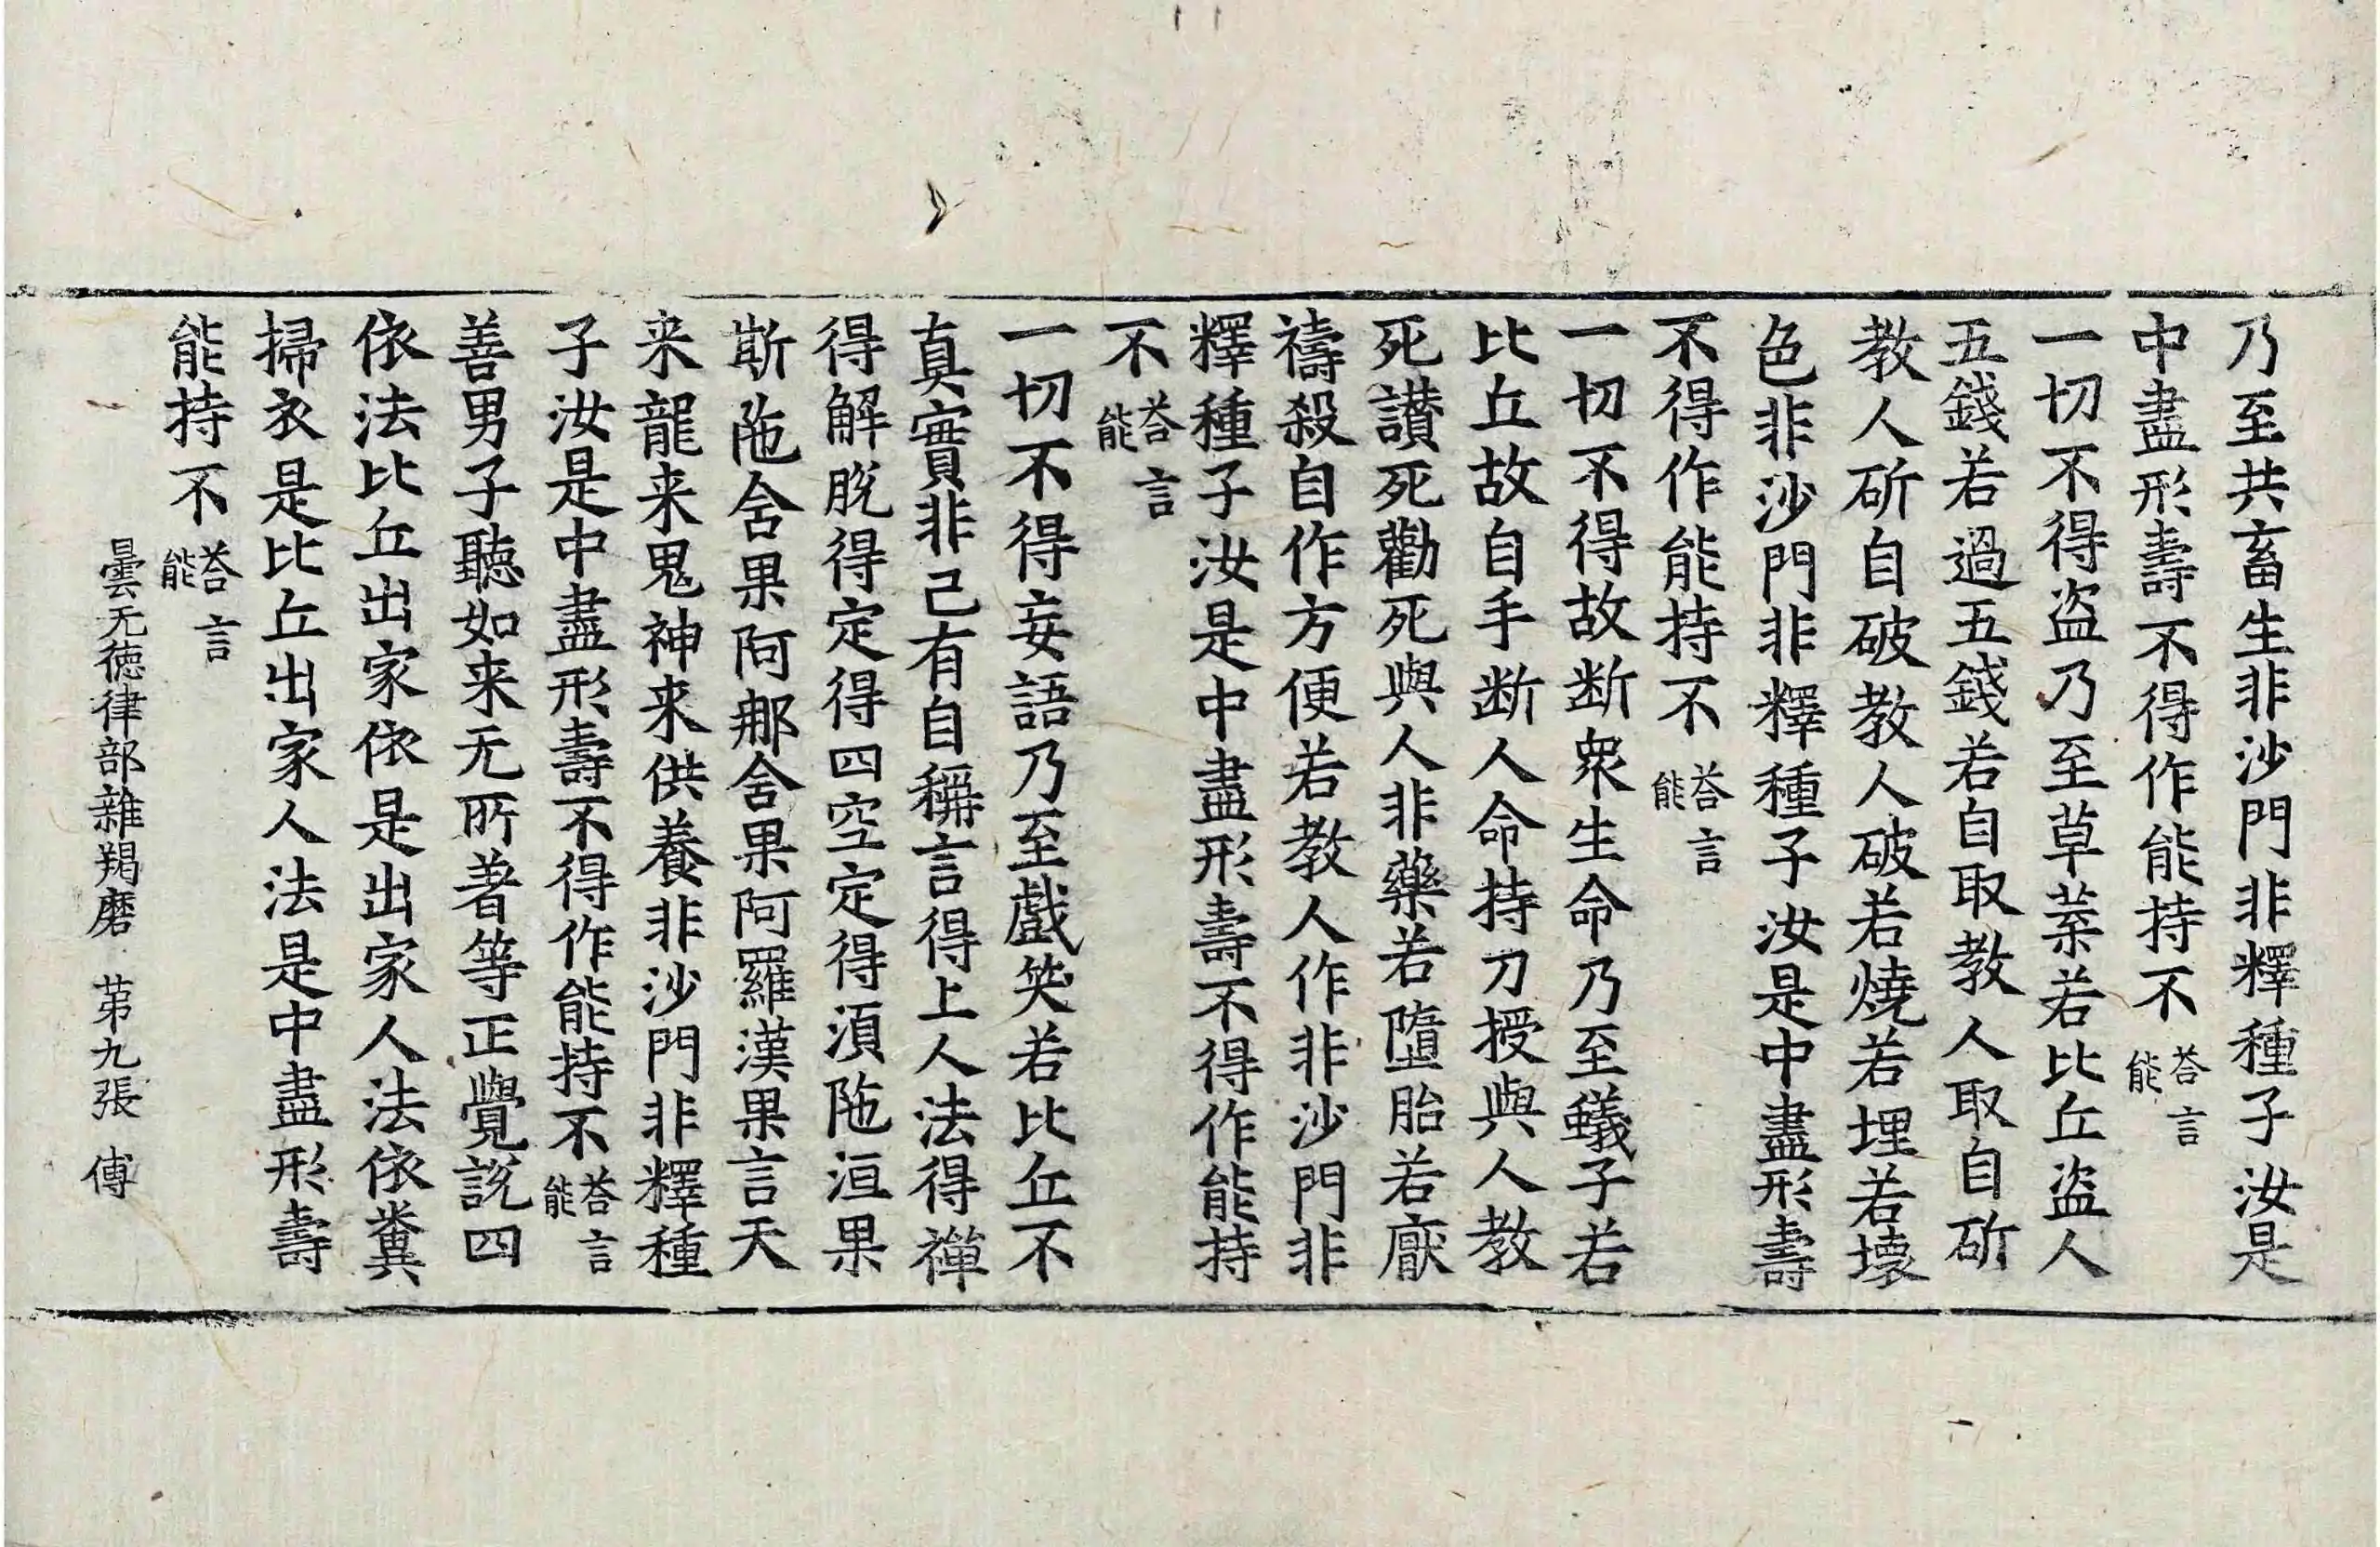 乃至共畜生非沙門非釋種子汝是
中盡形壽不得作能持不荅言能
一切不得盗乃至草葉若比丘盗人
五錢若過五錢若自取教人取自斫
教人斫自破教人破若燒若埋若壞
色非沙門非釋種子汝是中盡形壽
不得作能持不荅言能
一切不得故断衆生命乃至蟻子若
比丘故自手断人命持刀授與人教
死讃死勸死與人非藥若墮胎若厭
禱殺自作方便若教人作非沙門非
釋種子汝是中盡形壽不得作能持
不荅言能
一切不得妄語乃至戲笑若比丘不
真實非己有自稱言得上人法得禪
得解脫得定得四空定得湏陁洹果
斯陁舍果阿那舍果阿羅漢果言天
来龍来鬼神来供養非沙門非釋種
子汝是中盡形壽不得作能持不荅言能
善男子聽如来无所著等正覺說四
依法比丘出家依是出家人法依糞
掃衣是比丘出家人法是中盡形壽
能持不荅言能
曇无德律部雜羯磨 苐九張 傅